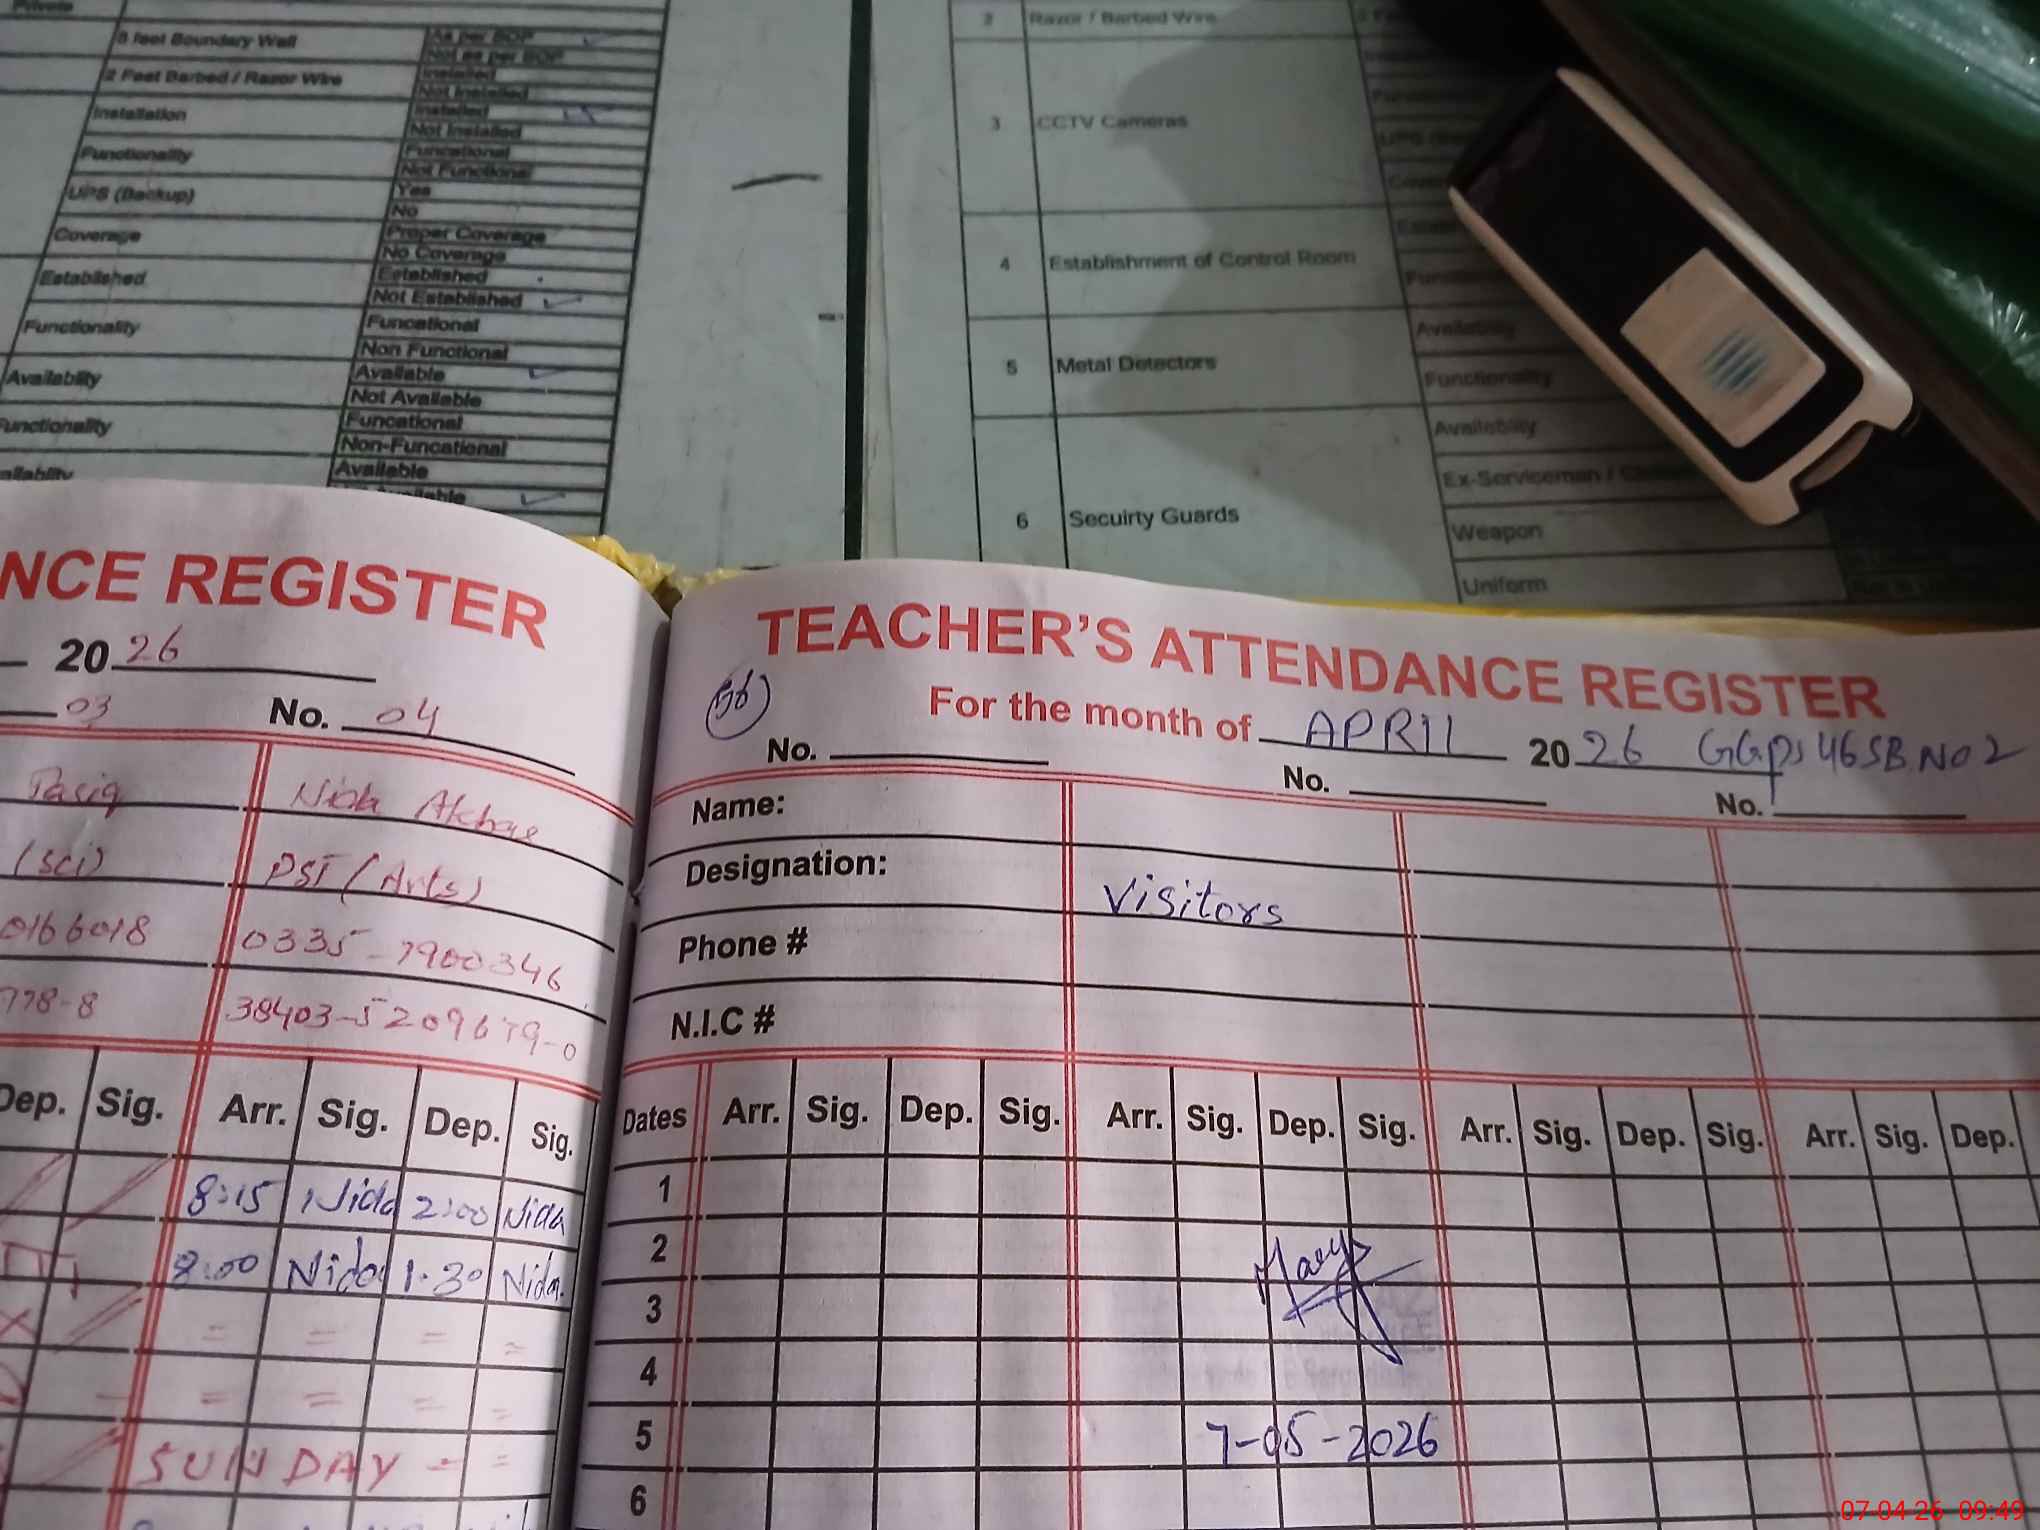 Private
8 feet Boundary Wall
As per SOP
Not as per SOP
2 Feet Barbed / Razor Wire
Installed
Not Installed
Installation
Installed
Not Installed
Functionality
Funcational
Not Functional
UPS (Backup)
Yes
No
Coverage
Proper Coverage
No Coverage
Established
Established
Not Established
Functionality
Funcational
Non Functional
Availablity
Available
Not Available
Functionality
Funcational
Non-Funcational
Available
2 Razor / Barbed Wire
3 CCTV Cameras
4 Establishment of Control Room
5 Metal Detectors
Availability
Functionality
6 Secuirty Guards
Availablity
Ex-Serviceman /
Weapon
Uniform
NCE REGISTER
2026
03 No. 04
Nida Akhar
(Sci) PST (Arts)
0166018 0335-7900346
778-8 38403-5209679-0
Dep. Sig. Arr. Sig. Dep. Sig.
8:15 Nida 2:00 Nida
8:00 Nida 1.30 Nida
= = = =
= = = =
SUNDAY - =
TEACHER'S ATTENDANCE REGISTER
56
For the month of APRIl 2026 GGPS 46SB.NO2
No. No. No.
Name:
Designation: Visitors
Phone #
N.I.C #
Dates Arr. Sig. Dep. Sig. Arr. Sig. Dep. Sig. Arr. Sig. Dep. Sig. Arr. Sig. Dep.
1
2
3
4
5 7-05-2026
6
07-04 26 09:49